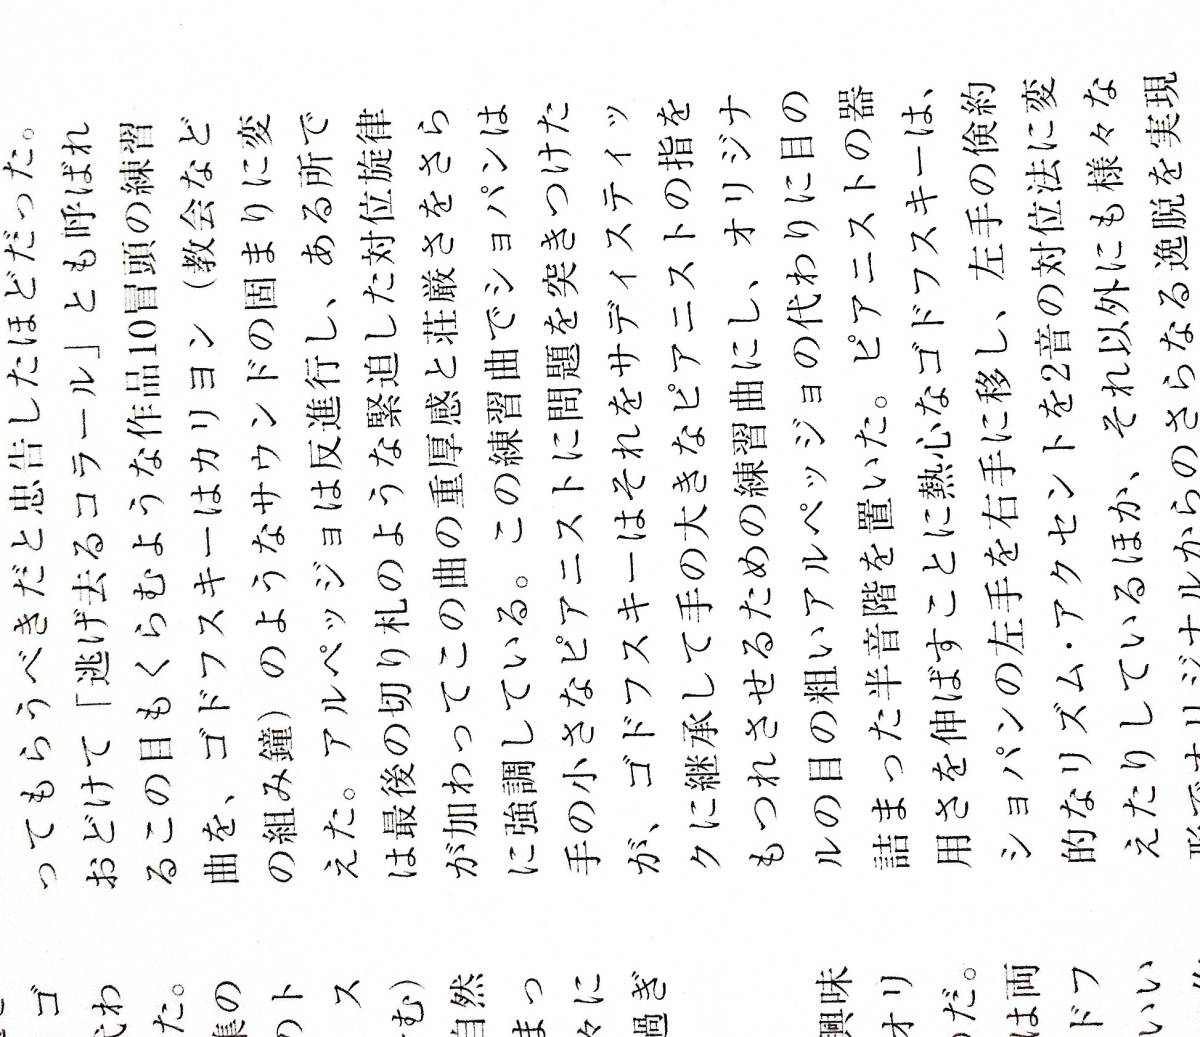 ゴ
わ
た。
の
ト
ス
む）
自然
まっ
々に
過ぎ
興味
オリ
だ。
は両
ドフ
いい
ってもらうべきだと忠告したほどだった。
おどけて「逃げ去るコラール」とも呼ばれ
るこの目もくらむような作品10冒頭の練習
曲を、ゴドフスキーはカリヨン（教会など
の組み鐘）のようなサウンドの固まりに変
えた。アルペッジョは反進行し、ある所で
は最後の切り札のような緊迫した対位旋律
が加わってこの曲の重厚感と荘厳さをさら
に強調している。この練習曲でショパンは
手の小さなピアニストに問題を突きつけた
が、ゴドフスキーはそれをサディスティッ
クに継承して手の大きなピアニストの指を
もつれさせるための練習曲にし、オリジナ
ルの目の粗いアルペッジョの代わりに目の
詰まった半音階を置いた。ピアニストの器
用さを伸ばすことに熱心なゴドフスキーは、
ショパンの左手を右手に移し、左手の倹約
的なリズム・アクセントを2音の対位法に変
えたりしているほか、それ以外にも様々な
形でオリジナルからのさらなる逸脱を実現